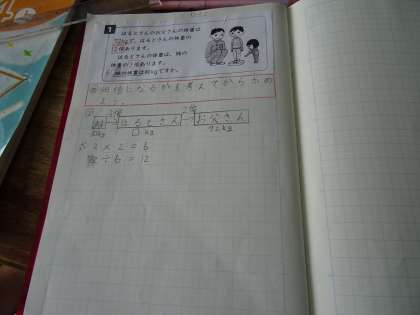 1 はるとさんのお父さんの体重は
72kgで、はるとさんの体重の
2倍あります。
はるとさんの体重は、妹の
体重の3倍あります。
妹の体重は何kgですか。
何倍になるかを考えてからもとめ
よう。
妹 はるとさん お父さん
□kg 72kg
3×2=6
÷6=12